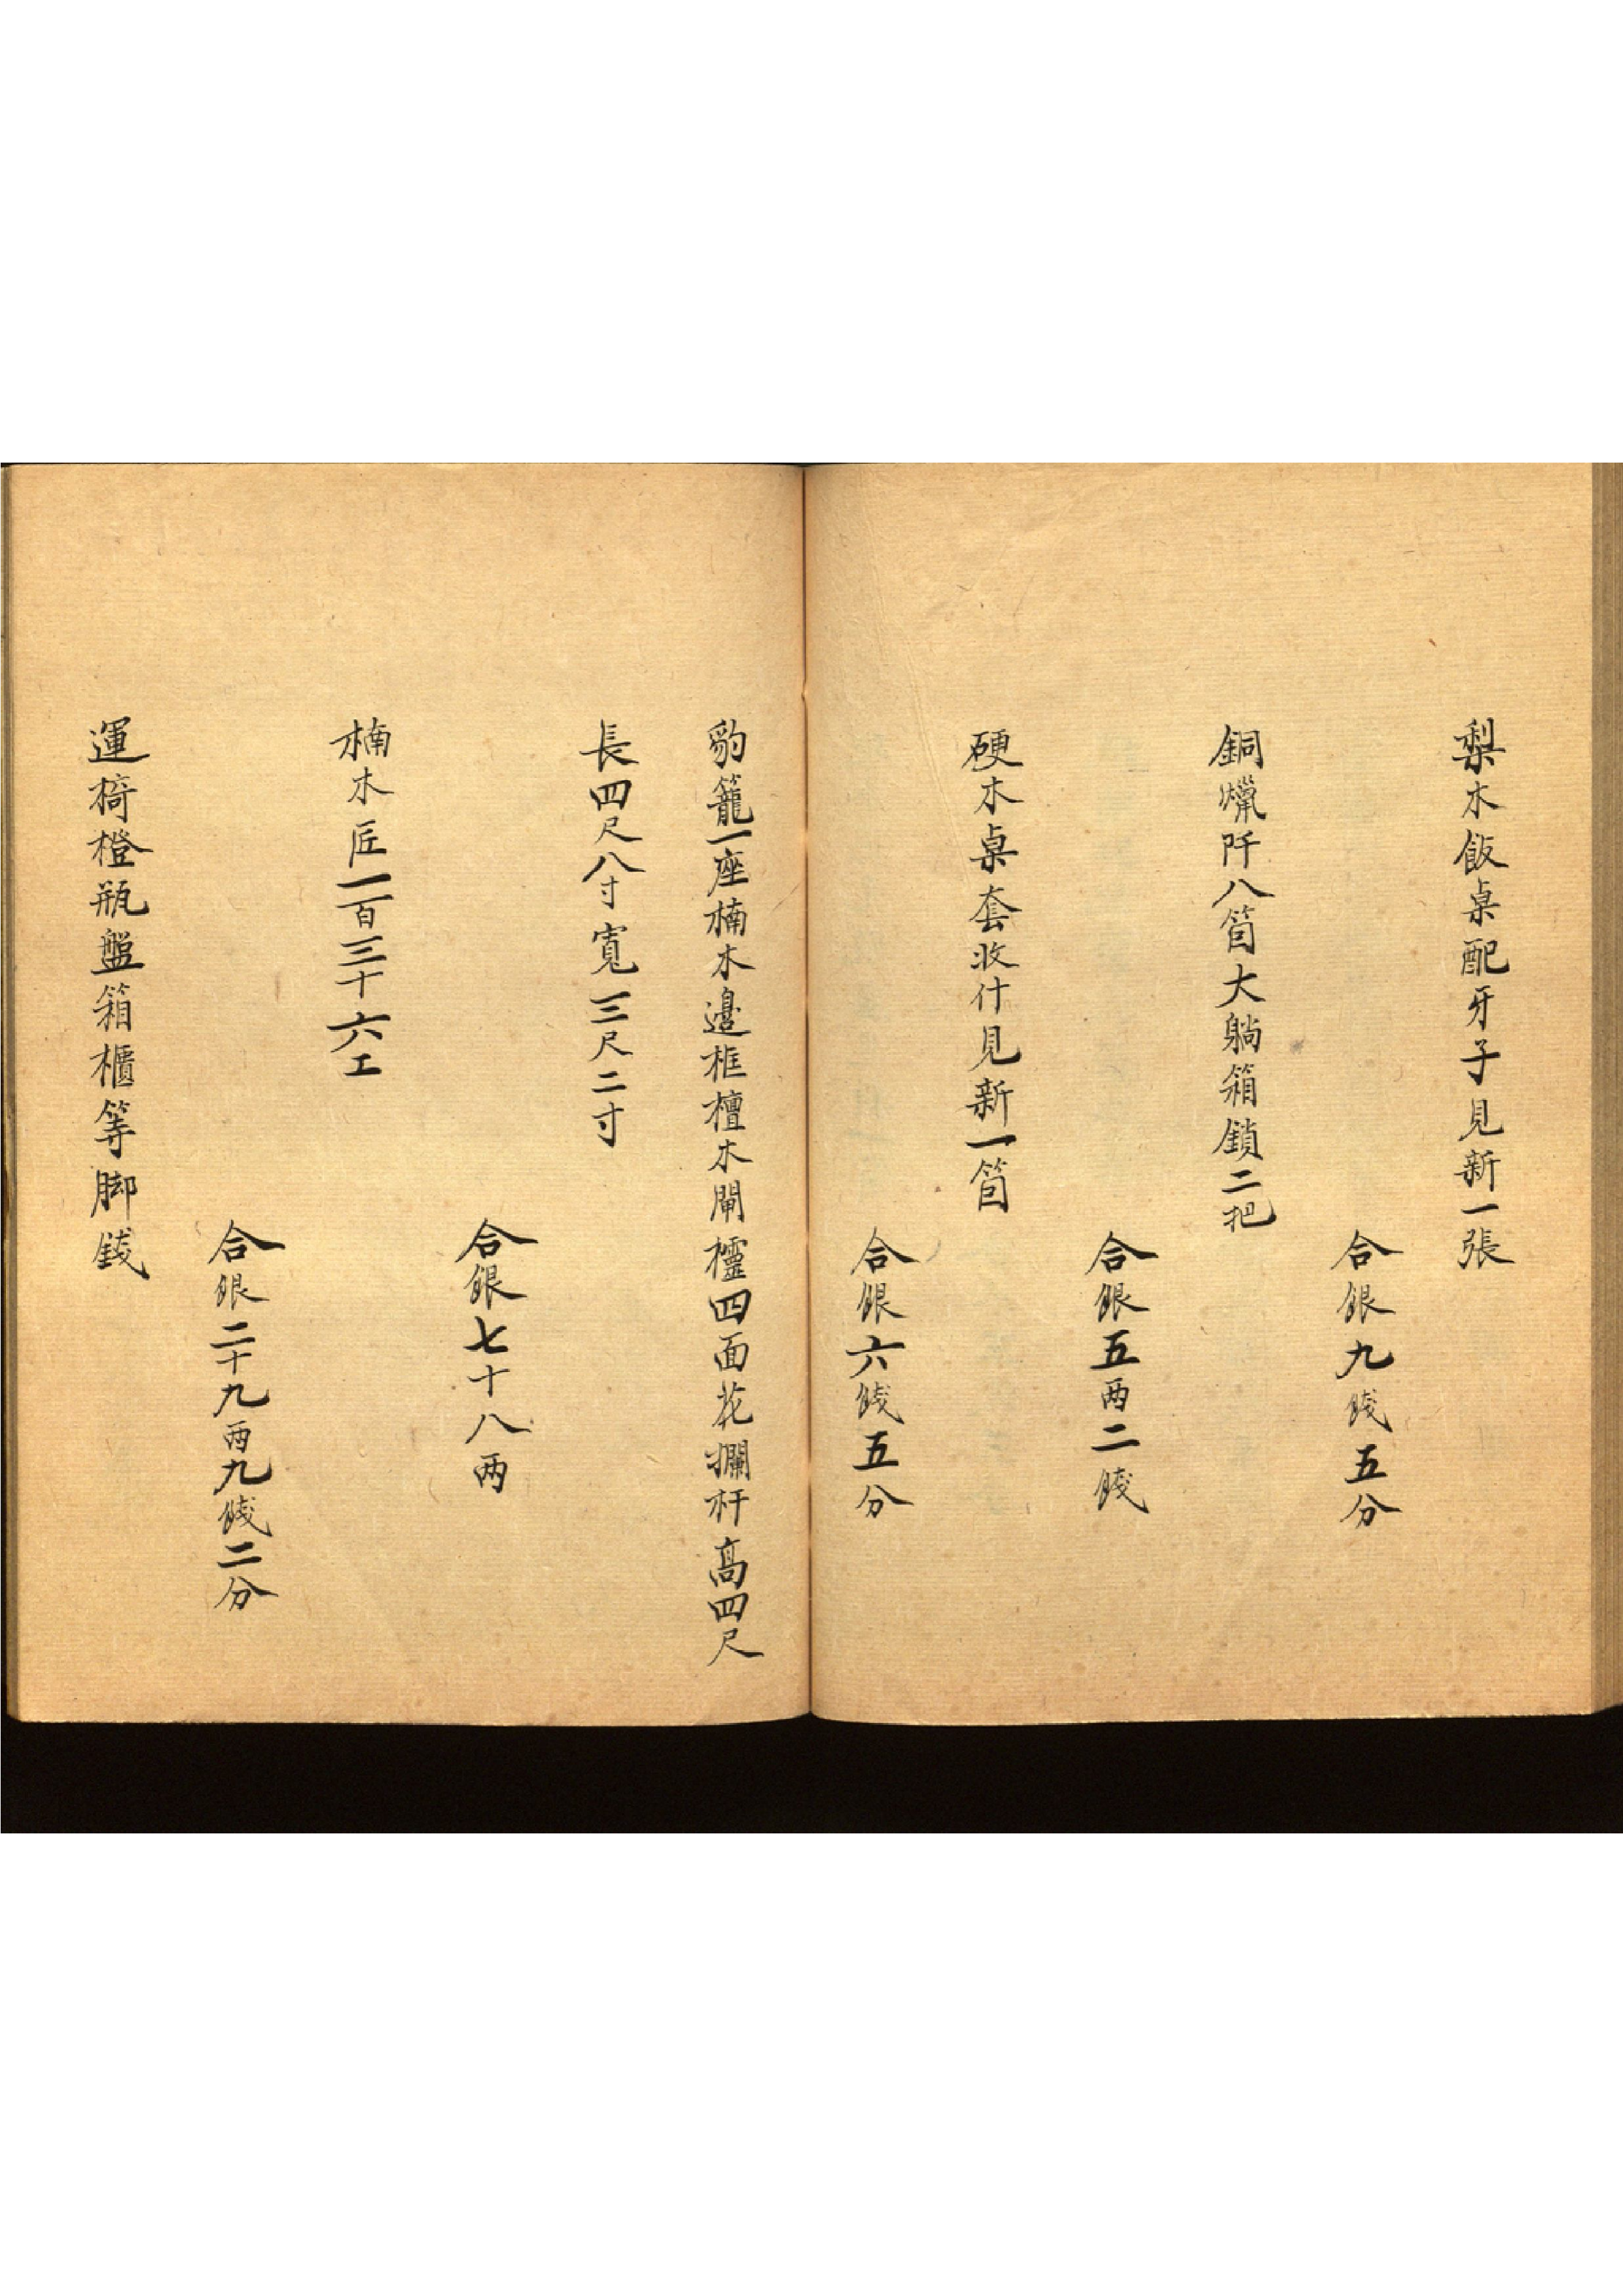 梨木飯桌配牙子見新一張
合銀九錢五分
銅爉阡八箇大躺箱鎖二把
合銀五两二錢
硬木桌套收什見新一箇
合銀六錢五分
豹籠一座楠木邊框檀木閘櫺四面花攔杆高四尺
長四尺八寸寬三尺二寸
合銀七十八两
楠木匠一百三十六工
合銀二十九两九錢二分
運椅橙瓶盤箱櫃等脚錢